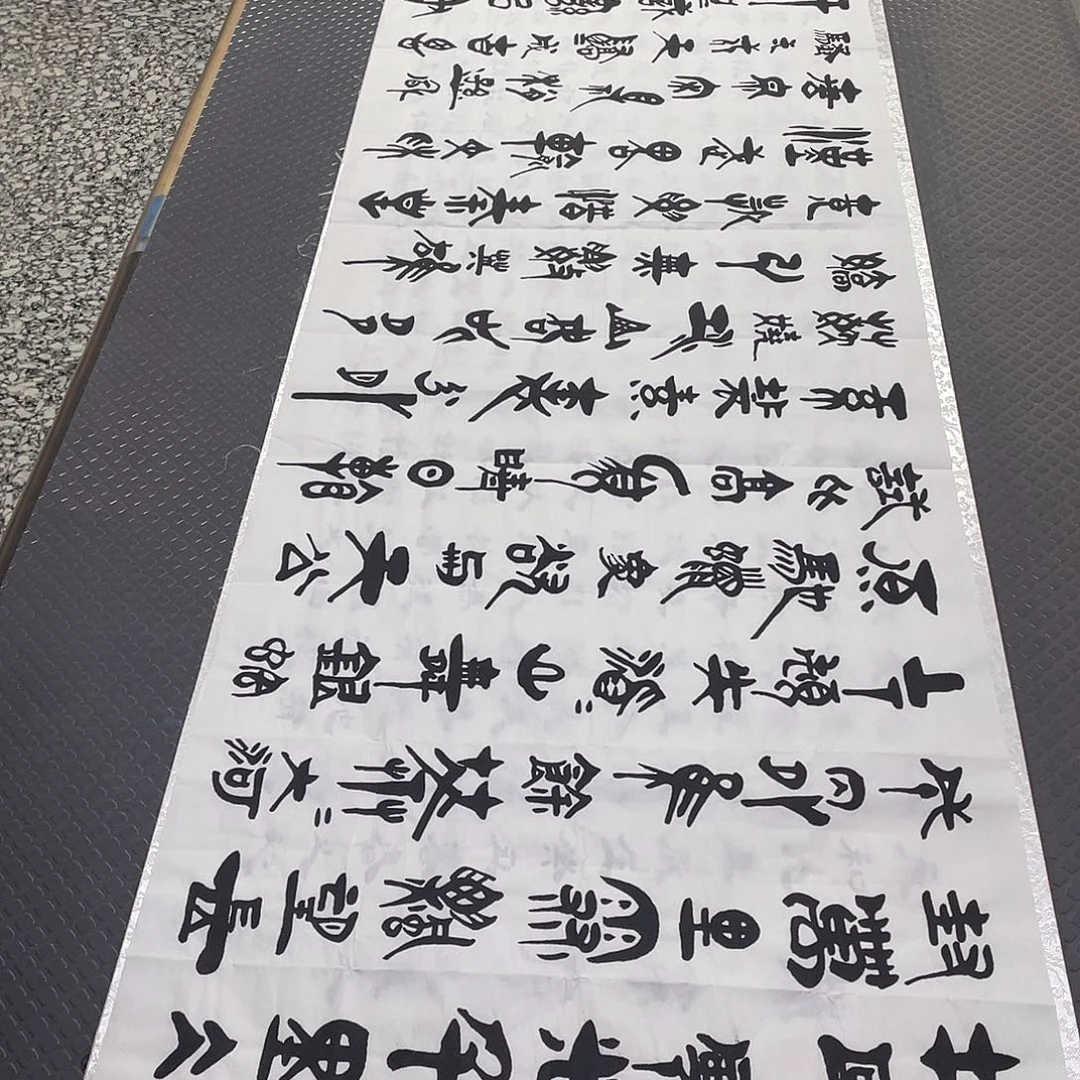 北國風光千里冰
封萬里雪飄望長
城内外惟餘莽〻大河
上下頓失滔〻山舞銀蛇
原馳蠟象欲與天公
試比高須晴日看
紅裝素裹分外
妖嬈江山如此多
嬌引無數英雄
競折腰惜秦皇
漢武略輸文采
唐宗宋祖稍遜風
騷一代天驕成吉思